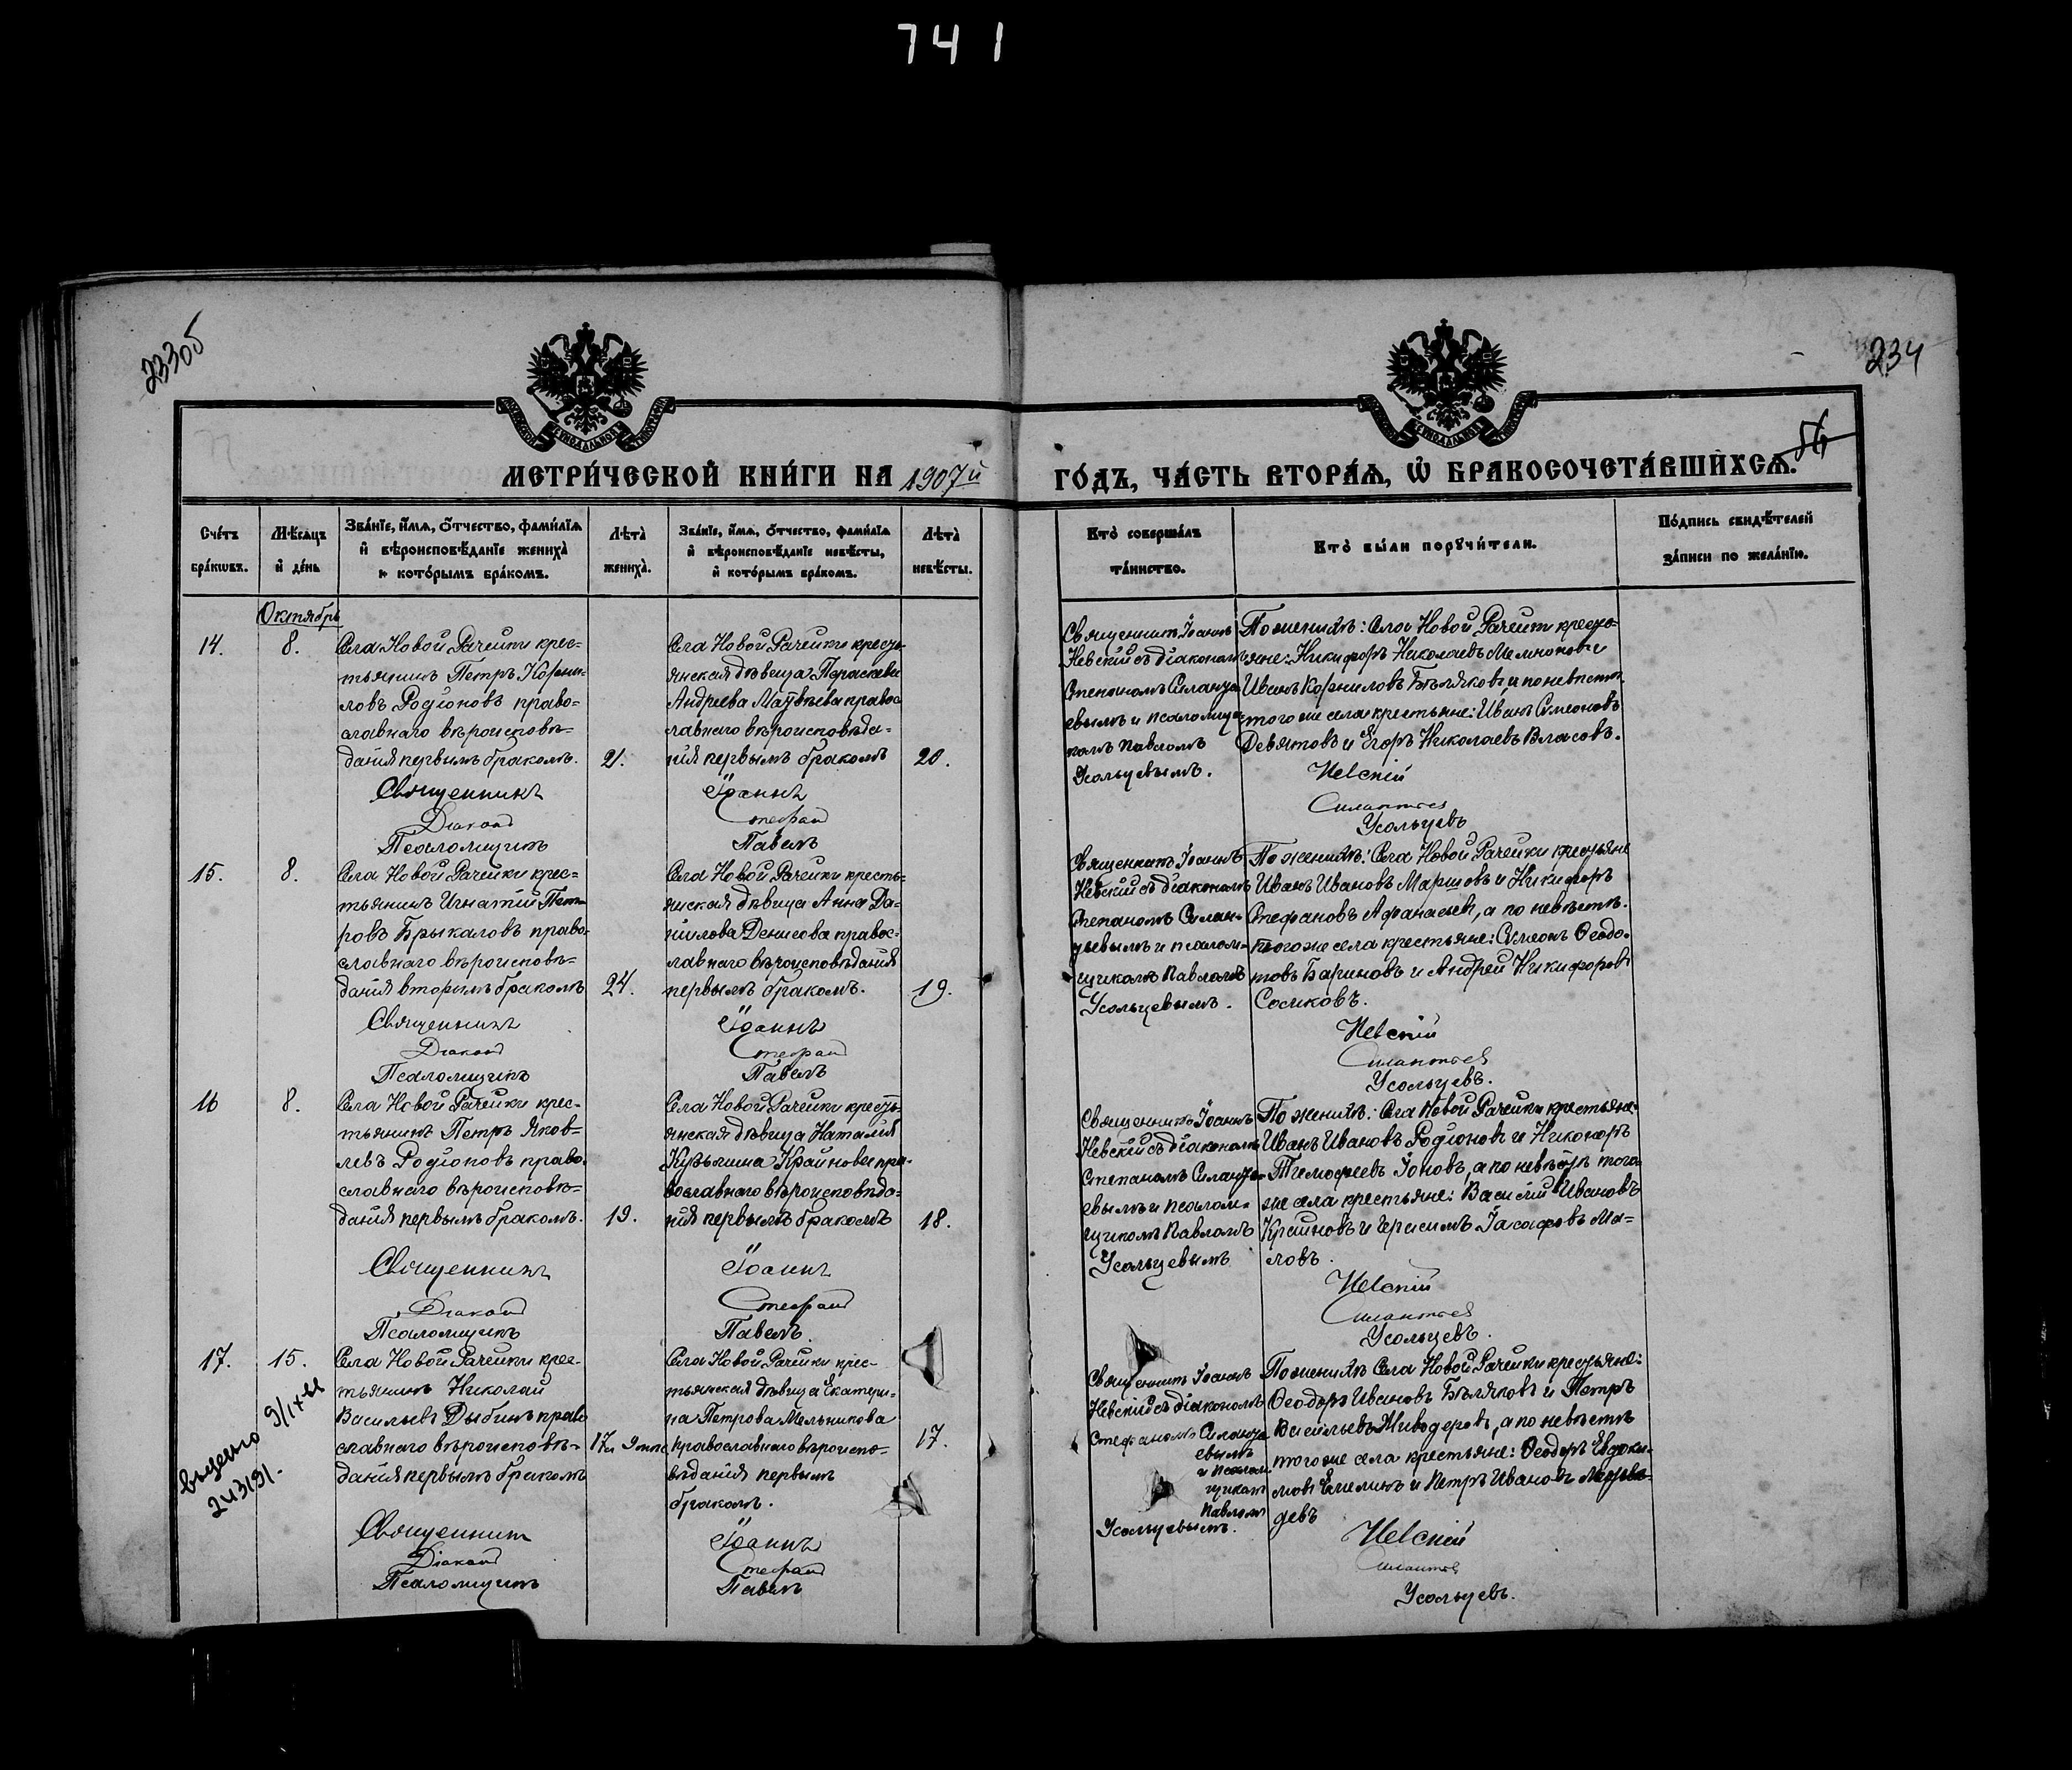 741
233об
234
56
МЕТРИ́ЧЕСКОЙ КНИ́ГИ НА 1907й
ГО́ДЪ, ЧА́СТЬ ВТОРА́Ѧ, Ѽ БРАКОСОЧЕТА́ВШИХСѦ.
Сче́тъ бра́кѡвъ.
Мѣ́сѧцъ и́ де́нь
Зва́нїе, и́мѧ, ѻ́тчество, фами́лїѧ и́ вѣроисповѣ́данїе жениха̀ и́ кото́рымъ бра́комъ.
Лѣта̀ жениха̀.
Зва́нїе, и́мѧ, ѻ́тчество, фами́лїѧ и́ вѣроисповѣ́данїе невѣ́сты, и́ кото́рымъ бра́комъ.
Лѣта̀ невѣ́сты.
Кто̀ соверша́лъ та́инство.
Кто̀ бы́ли поручи́тели.
По́дпись свидѣ́телей за́писи по жела́нїю.
Октябрь
14.
8.
Села Новой Рачейки крес-
тьянинъ Петръ Корни-
ловъ Родіоновъ право-
славнаго вѣроисповѣ-
данія первымъ бракомъ.
21.
Села Новой Рачейки кресть-
янская дѣвица Параскева
Андреева Матвѣева правос-
лавнаго вѣроисповѣда-
нія первымъ бракомъ
20.
Священникъ Іоаннъ
Невскій съ діакономъ
Степаномъ Силанть-
евымъ и псаломщи-
комъ Павломъ
Усольцевымъ.
По женихѣ: Села Новой Рачейки кресть-
яне: Никифоръ Николаевъ Мемноновъ и
Иванъ Корниловъ Бѣляковъ и по невѣстѣ
того же села крестьяне: Иванъ Симеоновъ
Девятовъ и Егоръ Николаевъ Власовъ.
Священникъ Іоаннъ Невскій
Діаконъ Стефанъ Силантьев
Псаломщикъ Павелъ Усольцевъ
15.
8.
Села Новой Рачейки крес-
тьянинъ Игнатій Пет-
ровъ Брыкаловъ право-
славнаго вѣроисповѣ-
данія вторымъ бракомъ
24.
Села Новой Рачейки кресть-
янская дѣвица Анна Да-
нилова Денисова правос-
лавнаго вѣроисповѣданія
первымъ бракомъ.
19.
Священникъ Іоаннъ
Невскій съ діакономъ
Степаномъ Силан-
тьевымъ и псалом-
щикомъ Павломъ
Усольцевымъ.
По женихѣ: Села Новой Рачейки крестьяне
Иванъ Ивановъ Маршовъ и Никифоръ
Стефановъ Афанасьев, а по невѣстѣ.
того же села крестьяне: Симеонъ Ѳеодо-
товъ Бариновъ и Андрей Никифоровъ
Сосиковъ.
Священникъ Іоаннъ Невскій
Діаконъ Стефанъ Силантьев
Псаломщикъ Павелъ Усольцевъ.
16
8.
Села Новой Рачейки крес-
тьянинъ Петръ Яков-
левъ Родіоновъ право-
славнаго вѣроисповѣ-
данія первымъ бракомъ.
19.
Села Новой Рачейки кресть-
янская дѣвица Наталія
Кузьмина Крайнова пра-
вославнаго вѣроисповѣда-
нія первымъ бракомъ
18.
Священникъ Іоаннъ
Невскій съ діакономъ
Степаномъ Силанть-
евымъ и псалом-
щикомъ Павломъ
Усольцевымъ
По женихѣ: Села Новой Рачейки крестьяне-
Иванъ Ивановъ Родіоновъ и Никоноръ
Тимофеевъ Іоновъ, а по невѣстѣ того-
же села крестьяне: Василій Ивановъ
Крайновъ и Герасимъ Іасафовъ Ма-
ловъ.
Священникъ Іоаннъ Невскій
Діаконъ Стефанъ Силантьев
Псаломщикъ Павелъ. Усольцевъ.
17.
15.
Села Новой Рачейки крес-
тьянинъ Николай
Васильевъ Дыбинъ право
славнаго вѣроисповѣ-
данія первымъ бракомъ
17
Села Новой Рачейки крес-
тьянская дѣвица Екатери-
на Петрова Мельникова
православнаго вѣроиспо-
вѣданія первымъ
бракомъ.
17.
Священникъ Іоаннъ
Невскій съ діакономъ
Стефаномъ Силанть
евымъ
и псалом-
щикомъ
Павломъ
Усольцевымъ.
По женихѣ Села Новой Рачейки крестьяне:
Ѳеодоръ Ивановъ Бѣляковъ и Петръ
Васильевъ Живодеровъ, а по невѣстѣ
того же села крестьяне: Ѳеодоръ Евдоки-
мовъ Емелинъ и Петръ Ивановъ Медвѣ-
девъ
Священникъ Іоаннъ Невскій
Діаконъ Стефанъ Силантьев
Псаломщикъ Павелъ Усольцевъ.
243191.